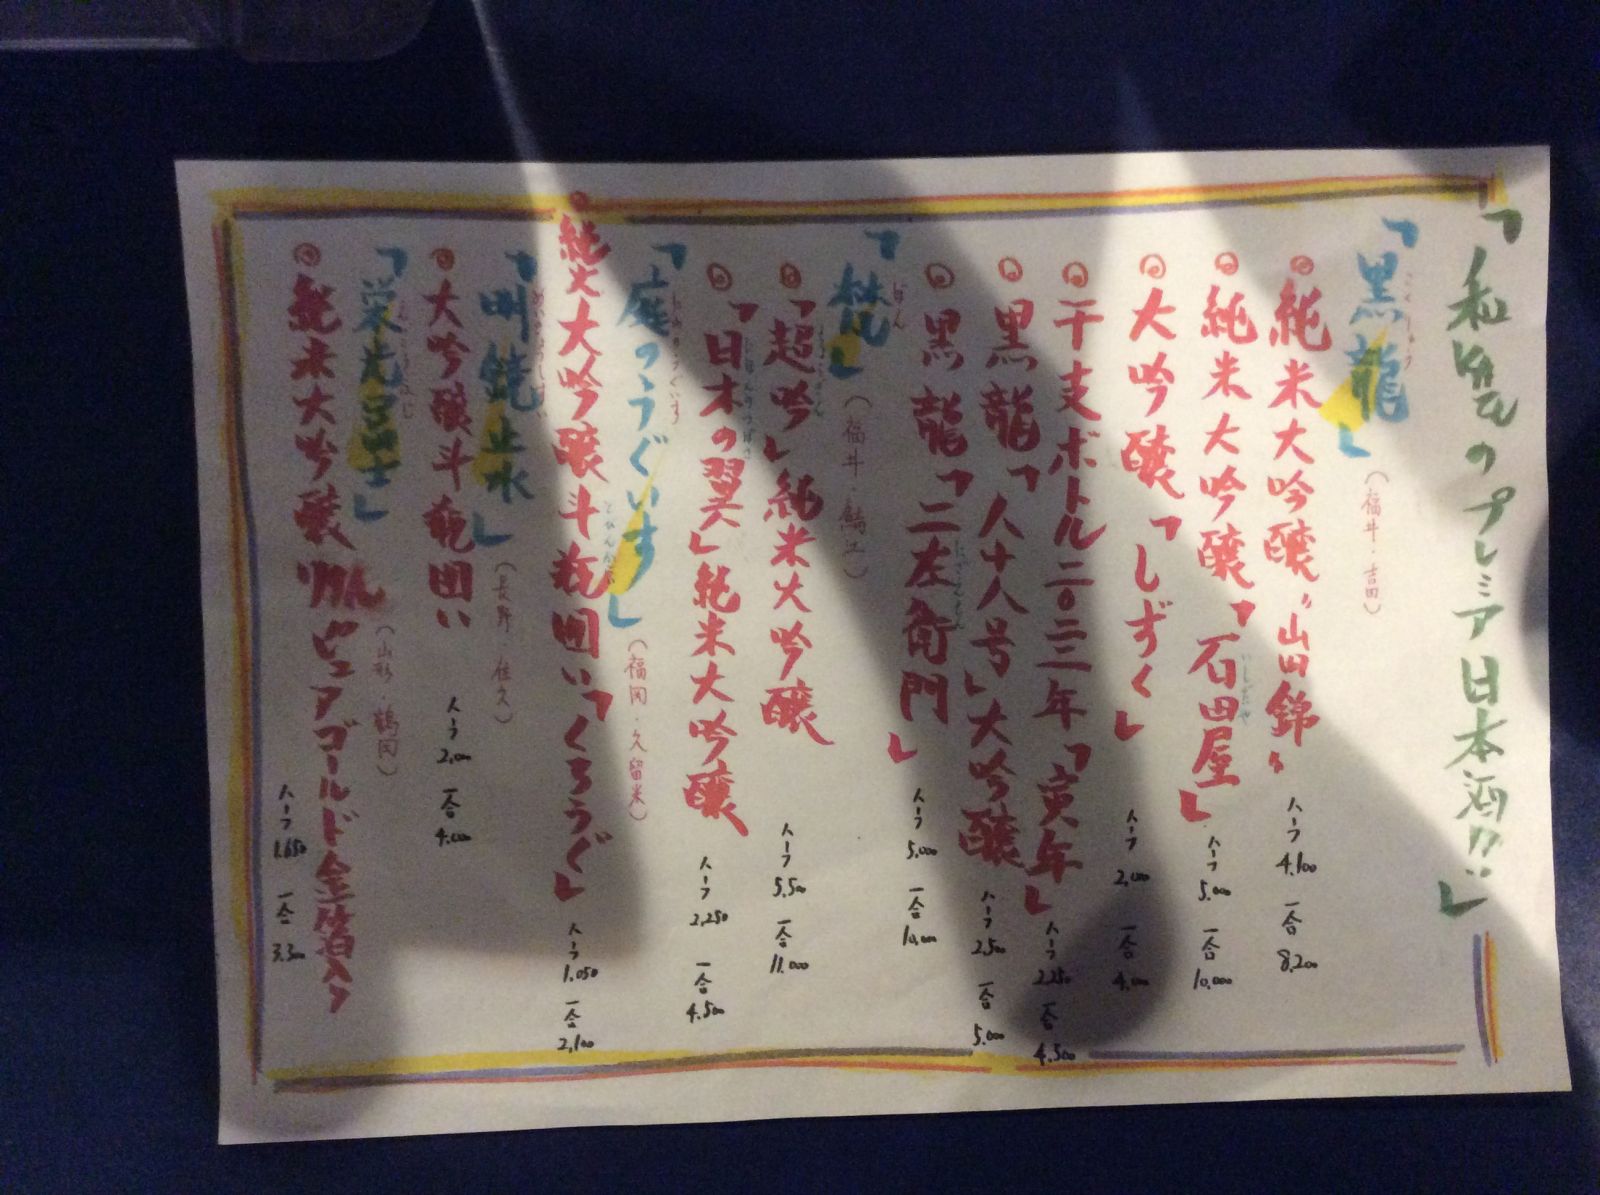 のプレミア日本酒!!」
「黒龍」
(福井・吉田)
純米大吟醸〝山田錦〟
ハーフ 4,100 一合 8,200
純米大吟醸「石田屋」
いしだや
ハーフ 5,000 一合 10,000
大吟醸「しずく」
ハーフ 2,000 一合 4,000
干支ボトル二〇二二年「寅年」
ハーフ 2,250 一合 4,500
黒龍「八十八号」大吟醸
ハーフ 2,500 一合 5,000
黒龍「二左衛門」
にざえもん
ハーフ 5,000 一合 10,000
「梵」
ぼん
(福井・鯖江)
「超吟」純米大吟醸
ハーフ 5,500 一合 11,000
「日本の翼」純米大吟醸
にほんのつばさ
ハーフ 2,250 一合 4,500
「庭のうぐいす」
にわのうぐいす
(福岡・久留米)
純米大吟醸斗瓶囲い「くろうぐ」
とびんかこい
ハーフ 1,050 一合 2,100
「明鏡止水」
(長野・佐久)
大吟醸斗瓶囲い
ハーフ 2,000 一合 4,000
「栄光冨士」
(山形・鶴岡)
純米大吟醸 ピュアゴールド金箔入り
ハーフ 1,650 一合 3,300